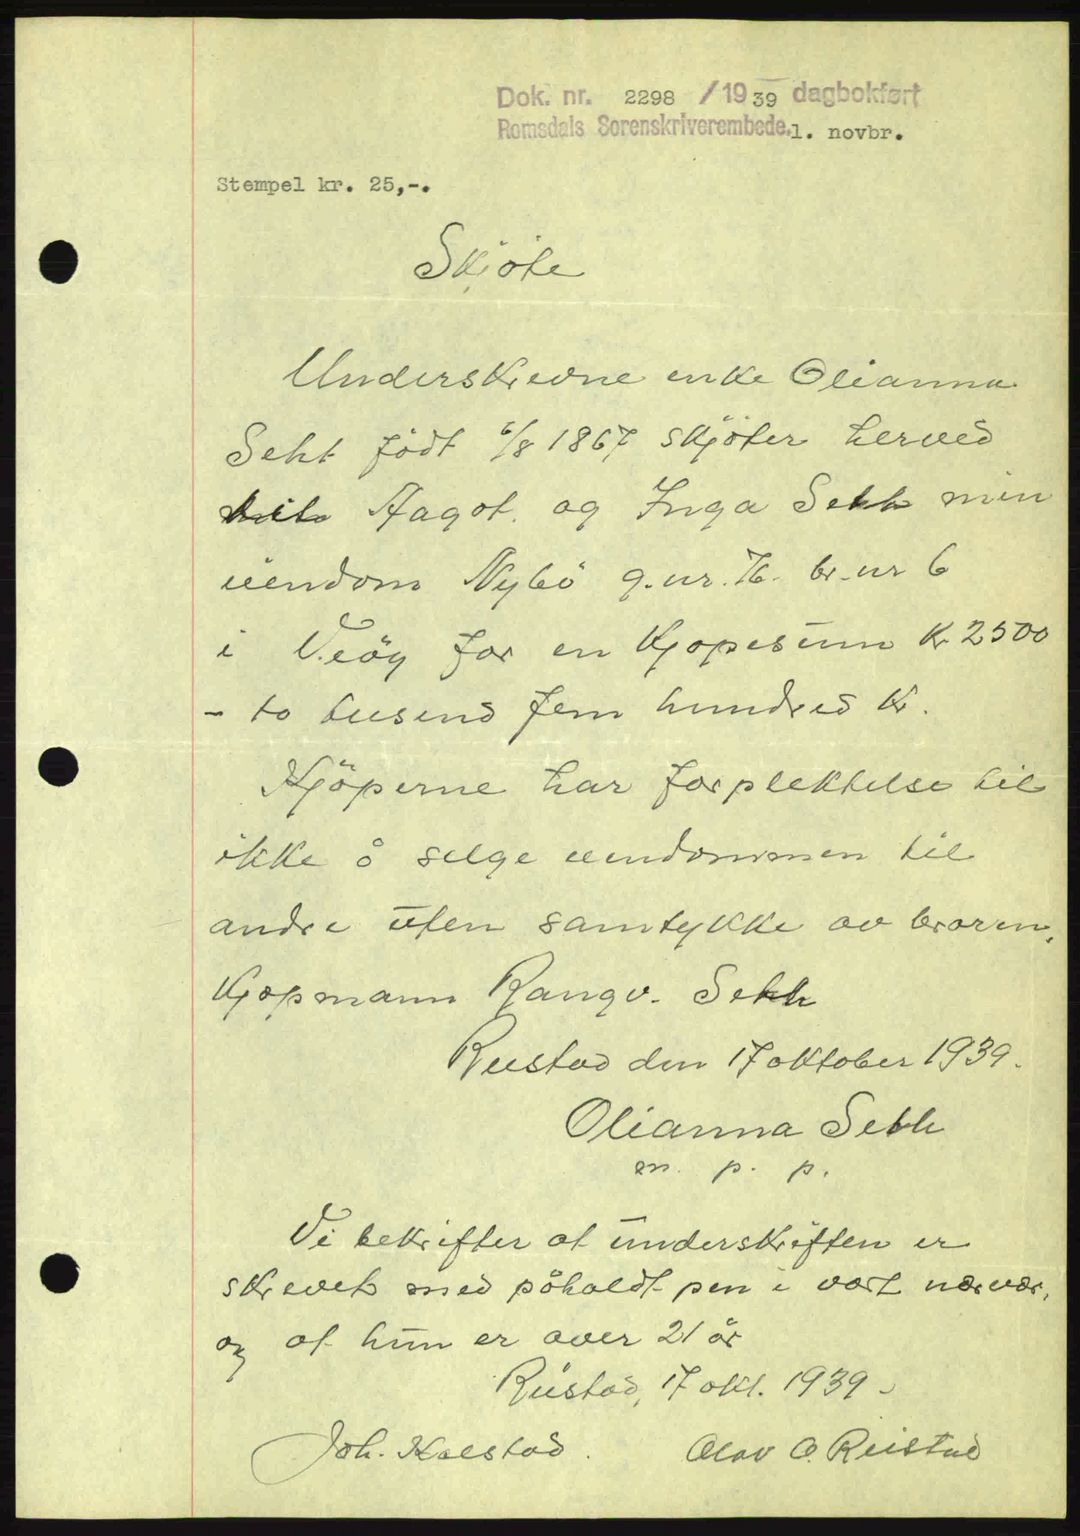 Dok. nr. 2298 / 19 39 dagbokført
Romsdals Sorenskriverembede. 1. novbr.
Stempel kr. 25,-.
Skjöte
Underskrevne enke Olianna
Seth født 6/8 1867 skjöter herved
Aagot og Inga Seth min
eiendom Nybö g.nr. 76. br.nr 6
i Veöy for en Kjøpesum Kr 2500
- to tusend fem hundred Kr.
Kjöperne har forplektelse til
ikke å selge eiendommen til
andre uten samtykke av broren,
Kjøpmann Rangv. Seth
Reistad den 17 oktober 1939.
Olianna Seth
m. p. p.
Vi bekrifter at underskriften er
skrevet med påholdt pen i vort nærvær,
og at hun er over 21 år
Reistad, 17 okt. 1939
Joh. Kolstad. Olav O. Reistad